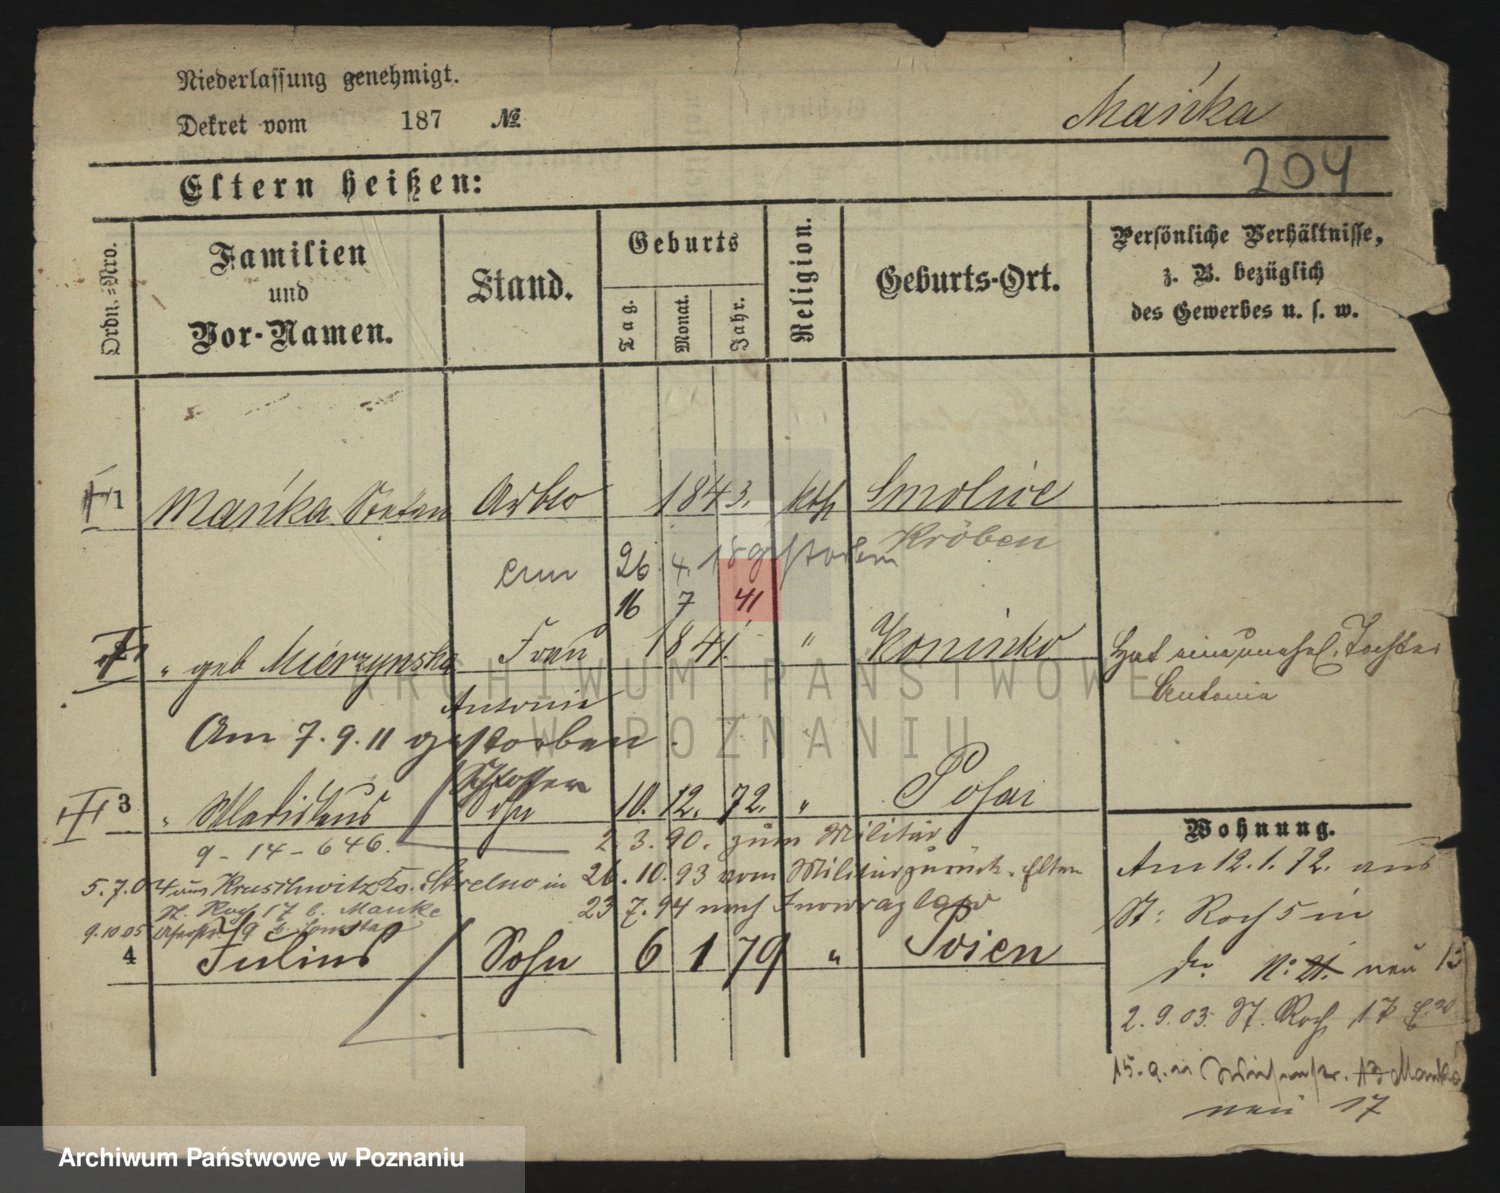 Niederlassung genehmigt.
Dekret vom 187 №
Mańka
204
Eltern heißen:
Ordn.=Nro.
Familien
und
Vor-Namen.
Stand.
Geburts
Tag.
Monat.
Jahr.
Religion.
Geburts-Ort.
Persönliche Verhältnisse,
z. B. bezüglich
des Gewerbes u. s. w.
1 Mańka Stefan 1843. kth Smolice
26 4. 18 gestorben Kröben
16 7 41
2 " geb Mierzynska Frau 1841. " Koninko Hat eine unehel. Tochter
Antonie Antonie
Am 7.9.11 gestorben.
Schlosser
3 " Wladislaus Sohn 10. 12. 72. " Posen
9-14-646. 2. 3. 90. zum Militär
5.7.04 aus Kruschwitz Kr. Strelno in 26.10.93 vom Militär zurück. Eltern
St. Roch 17 b. Manke 23 7. 94 nach Inowrazlaw
9.10.05
4 Julius Sohn 6 1 79 "
Wohnung.
Am 12.1.72. aus
St: Roch 5 in
do N: 21. neu 13
2.9.03. St. Roch 17
15.9. 13 Manka
neu 17
ARCHIWUM PAŃSTWOWE
W POZNANIU
Archiwum Państwowe w Poznaniu